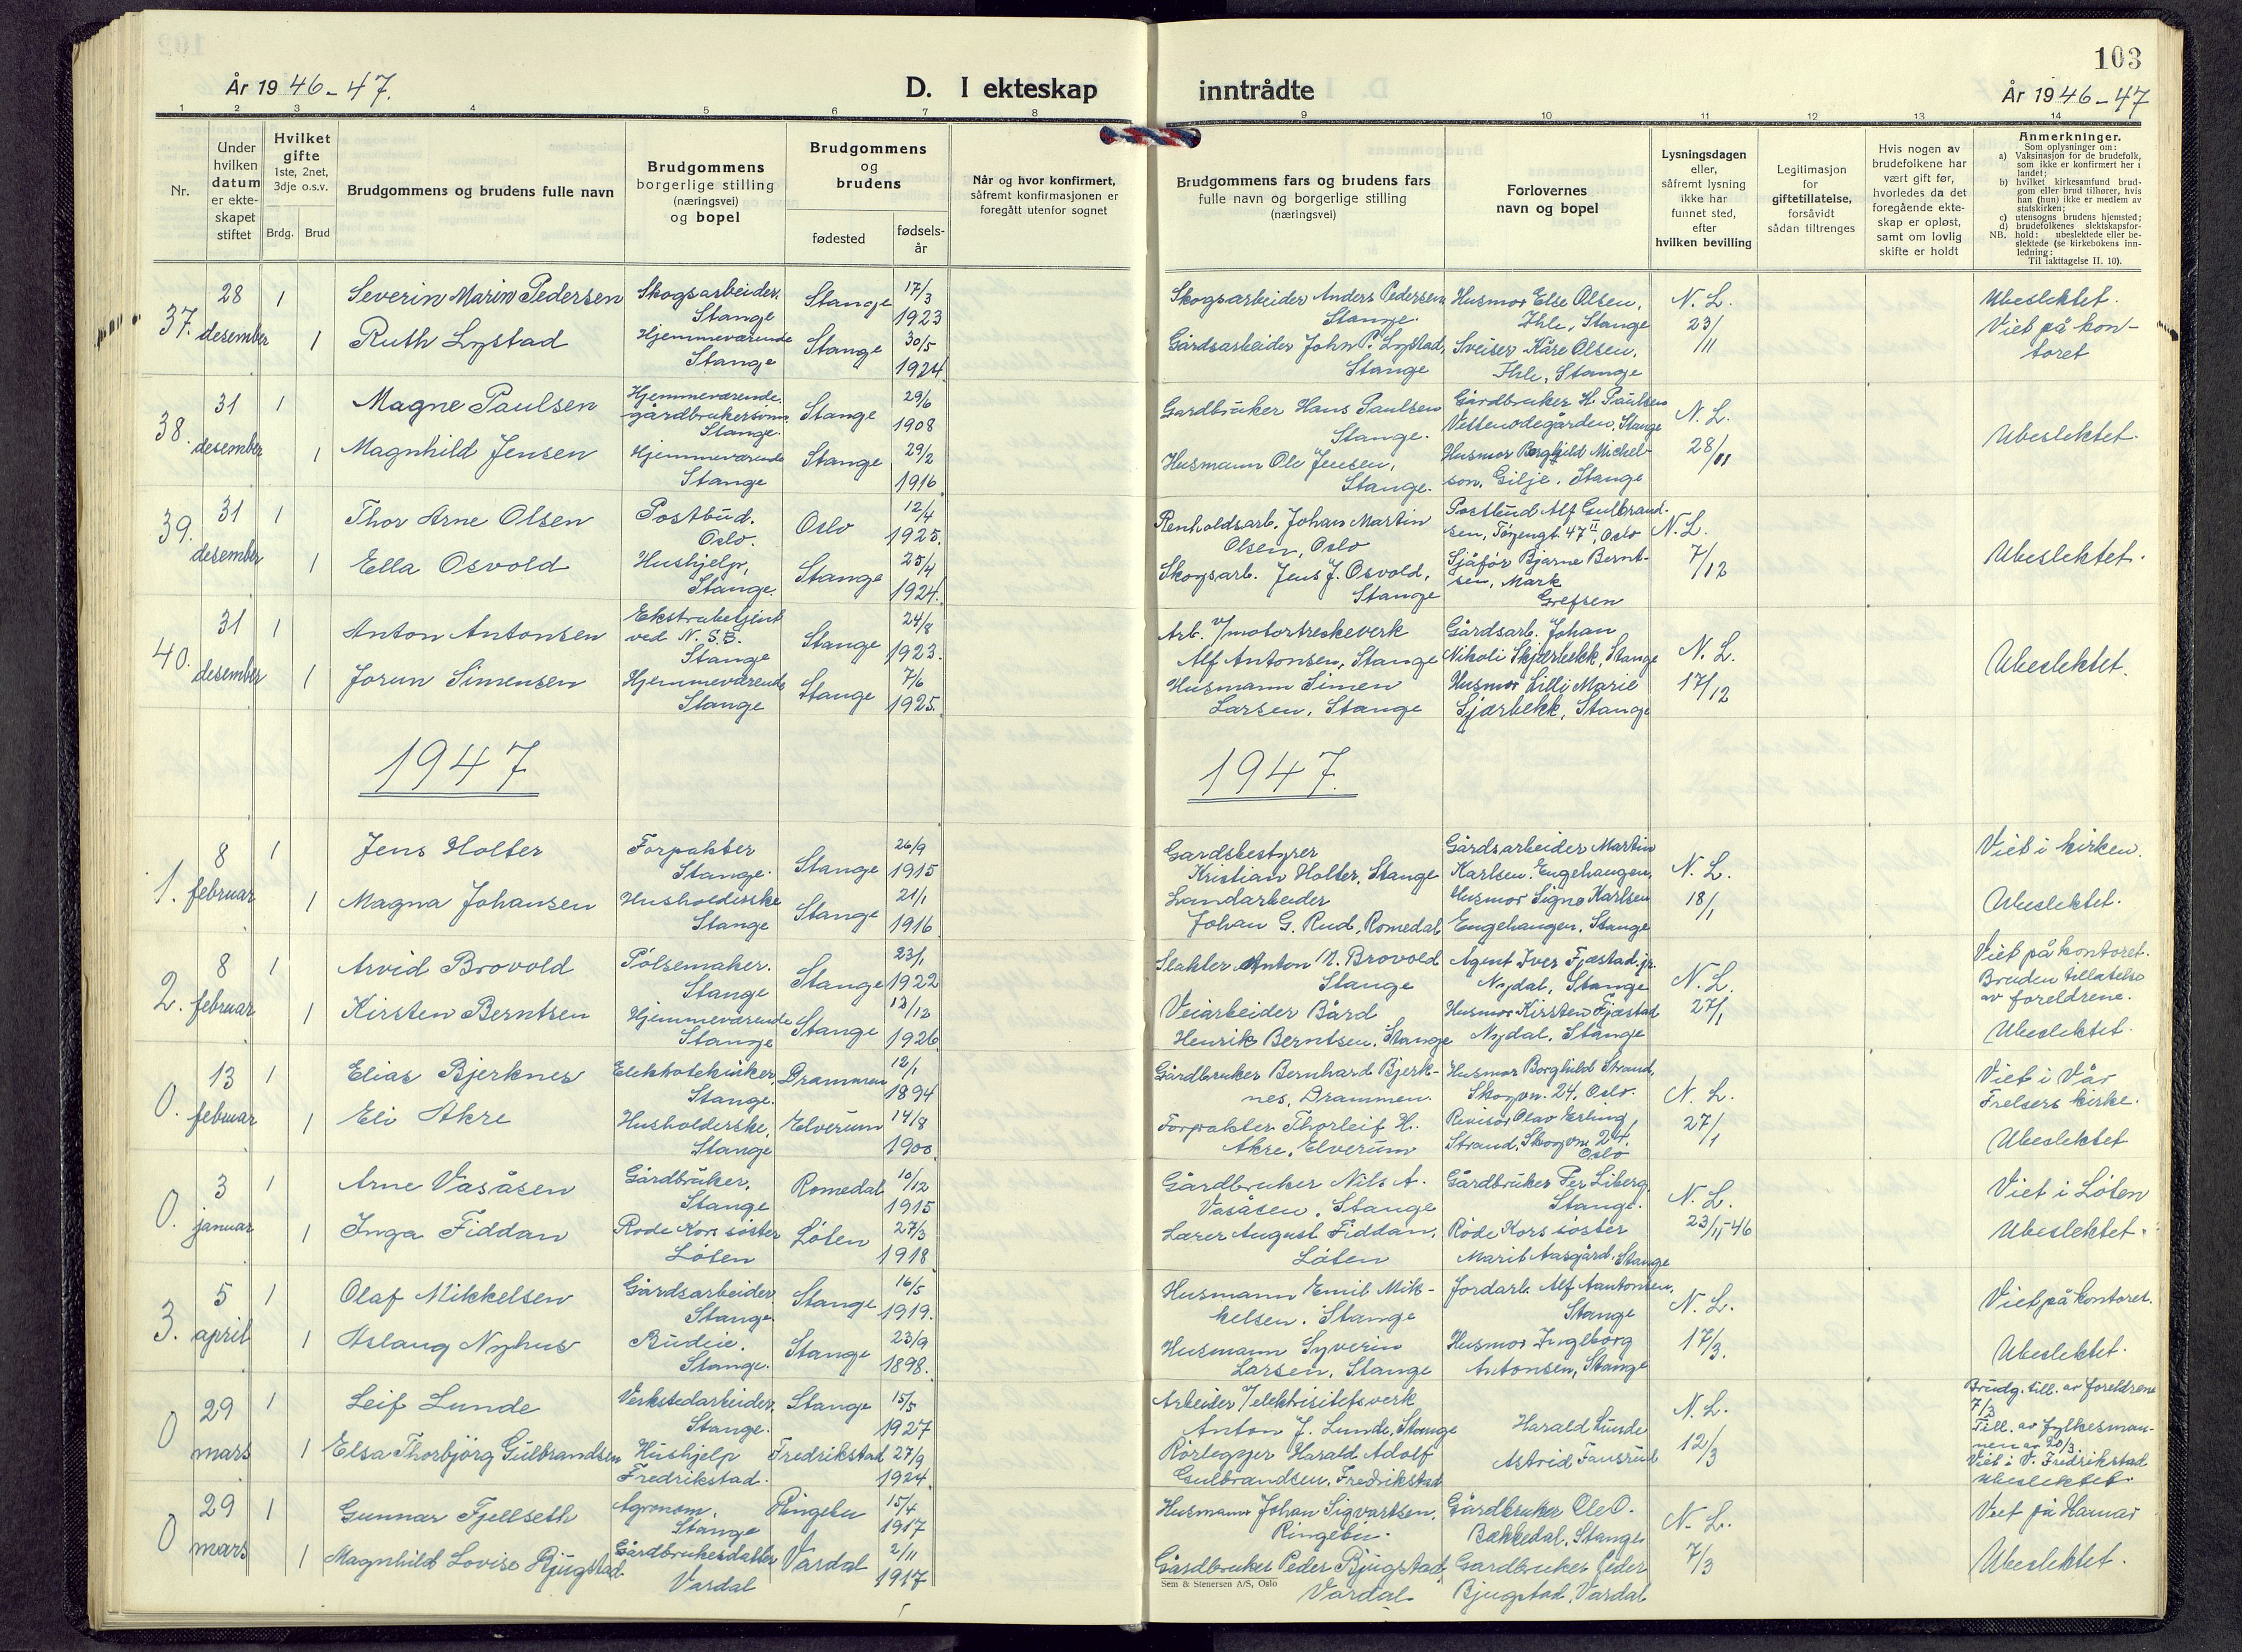 103
År 1946-47.
D. I ekteskap
inntrådte
År 1946-47
1 2 3 4 5 6 7 8 9 10 11 12 13 14
Nr.
Under
hvilken
datum
er ekte-
skapet
stiftet
Hvilket
gifte
1ste, 2net,
3dje o.s.v.
Brdg. Brud
Brudgommens og brudens fulle navn
Brudgommens
borgerlige stilling
(næringsvei)
og bopel
Brudgommens
og
brudens
fødested
fødsels-
år
Når og hvor konfirmert,
såfremt konfirmasjonen er
foregått utenfor sognet
Brudgommens fars og brudens fars
fulle navn og borgerlige stilling
(næringsvei)
Forlovernes
navn og bopel
Lysningsdagen
eller,
såfremt lysning
ikke har
funnet sted,
efter
hvilken bevilling
Legitimasjon
for
giftetillatelse,
forsåvidt
sådan tiltrenges
Hvis nogen av
brudefolkene har
vært gift før,
hvorledes da det
foregående ekte-
skap er opløst,
samt om lovlig
skifte er holdt
Anmerkninger.
Som oplysninger om:
a) Vaksinasjon for de brudefolk,
som ikke er konfirmert her i
landet;
b) hvilket kirkesamfund brud-
gom eller brud tilhører, hvis
han (hun) ikke er medlem av
statskirken;
c) utensogns brudens hjemsted;
d) brudefolkenes slektskapsfor-
NB. hold: ubeslektede eller be-
slektede (se kirkebokens inn-
ledning:
Til iakttagelse II. 10).
37. 28 desember
1 Severin Marin Pedersen
Skogsarbeider. Stange
Stange 17/3 1923
Skogsarbeider Anders Pedersen Stange.
Husmor Else Olsen, Ihle, Stange
N. L. 23/11
Ubeslektet.
Viet på kon-
toret
1 Ruth Lystad
Hjemmeværende Stange
Stange 30/5 1924
Gårdsarbeider John P. Lystad, Stange
Sveiser Kåre Olsen, Ihle, Stange
38. 31 desember
1 Magne Paulsen
Hjemmeværende gårdbrukersønn Stange.
Stange 29/6 1908
Gardbruker Hans Paulsen Stange.
Gårdbruker H. Paulsen Vettenodegården, Stange
N. L. 28/11
Ubeslektet.
1 Magnhild Jensen
Hjemmeværende Stange
Stange 29/2 1916
Husmann Ole Jensen, Stange.
Husmor Borghild Michel-
son, Gilje, Stange
39. 31 desember
1 Thor Arne Olsen
Postbud. Oslo.
Oslo 12/4 1925.
Renholdsarb. Johan Martin Olsen, Oslo
Postbud Alf Gulbrand-
sen, 47 II, Oslo
N. L. 7/12
Ubeslektet.
1 Ella Osvold
Hushjelp, Stange.
Stange 25/4 1924.
Skogsarb. Jens J. Osvold, Stange
Sjåfør Bjarne Bernt-
sen, Mark Grefsen
40. 31 desember
1 Anton Antonsen
Ekstrabetjent ved N.S.B. Stange
Stange 24/8 1923.
Arb. v/motortreskeverk Alf Antonsen, Stange
Gårdsarb. Johan Nikoli Skjærbekk, Stange
N. L. 17/12
Ubeslektet.
1 Jorun Simensen
Hjemmeværende Stange
Stange 7/6 1925.
Husmann Simen Larsen, Stange
Husmor Lilli Marie Sjærbekk, Stange
1947
1947.
1. 8 februar
1 Jens Holter
Forpakter Stange.
Stange 26/9 1915
Gardsbestyrer Kristian Holter, Stange
Gårdsarbeider Martin Karlsen, Engehaugen,
N. L. 18/1
Viet i kirken.
Ubeslektet.
1 Magna Johansen
Husholderske Stange
Stange 21/1 1916
Landarbeider Johan G. Rud, Romedal
Husmor Signe Karlsen Engehaugen, Stange
2. 8 februar
1 Arvid Brovold
Pølsemaker. Stange
Stange 23/1 1922
Slakter Anton N. Brovold Stange
Agent Iver Fjæstad jr. Nydal, Stange
N. L. 27/1
Viet på kontoret.
Bruden tillatelse
av foreldrene.
Ubeslektet.
1 Kirsten Berntsen
Hjemmeværende Stange
Stange 13/12 1926
Veiarbeider Bård Henrik Berntsen, Stange
Husmor Kirsten Fjæstad Nydal, Stange
0. 13 februar
1 Elias Bjerknes
Elektrotekniker, Stange.
Drammen 12/1 1894
Gårdbruker Bernhard Bjerk-
nes, Drammen.
Husmor Borghild Strand, Skogvn. 24, Oslo.
N. L. 27/1
Viet i Vår
Frelsers kirke.
Ubeslektet
1 Eli Akre
Husholderske, Stange
Elverum 14/8 1900.
Forpakter Thorleif H. Akre, Elverum
Revisor Olav Erling Strand, Skogvn. 24. Oslo
0. 3 januar
1 Arne Vasåsen
Gårdbruker, Stange
Romedal 10/12 1915
Gårdbruker Nils A. Vasåsen, Stange
Gårdbruker Per Liberg, Stange.
N. L. 23/11-46
Viet i Løten
Ubeslektet.
1 Inga Fiddan
Røde Kors søster Løten
Løten 27/3 1918
Lærer August Fiddan, Løten
Røde Kors søster Marit Aasgård, Stange
3. 5 april
1 Olaf Mikkelsen
Gårdsarbeider Stange
Stange 16/5 1919.
Husmann Emil Mik-
kelsen, Stange
Jordarb. Alf Aantonsen, Stange
N. L. 17/3.
Viet på kontoret.
Ubeslektet.
1 Aslaug Nyhus
Budeie. Stange.
Stange 23/9 1898.
Husmann Syverin Larsen, Stange
Husmor Ingeborg Antonsen, Stange
0 29 mars
1 Leif Lunde
Verkstedarbeider, Stange.
Stange 15/5 1927
Arbeider v/elektrisitetsverk Anton J. Lunde, Stange
Harald Lunde
N. L. 12/3
Brudg. till. av foreldrene
7/3
Till. av fylkesman-
nen av 20/3
Viet i V. Fredrikstad
Ubeslektet.
1 Elsa Thorbjörg Gulbrandsen
Hushjelp Fredrikstad.
Fredrikstad 27/9 1924.
Rørlegger Harald Adolf Gulbrandsen, Fredrikstad
Astrid Fausrud
0 29 mars
1 Gunnar Fjellseth
Agronom, Stange
Ringebu 15/4 1917
Husmann Johan Sigvartsen, Ringebu.
Gårdbruker Ole O. Bækkedal, Stange
N. L. 7/3
Viet på Hamar
Ubeslektet.
1 Magnhild Lovise Bjugstad
Gårdbrukerdatter Vardal
Vardal 2/11 1917
Gårdbruker Peder Bjugstad Vardal.
Gardbruker Peder Bjugstad, Vardal
Sem & Stenersen A/S, Oslo